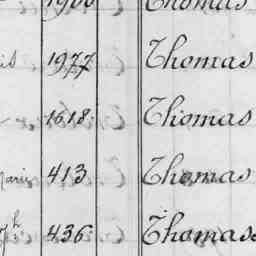 Thomas
1977 Thomas
1618 Thomas
413 Thomas
436 Thomas